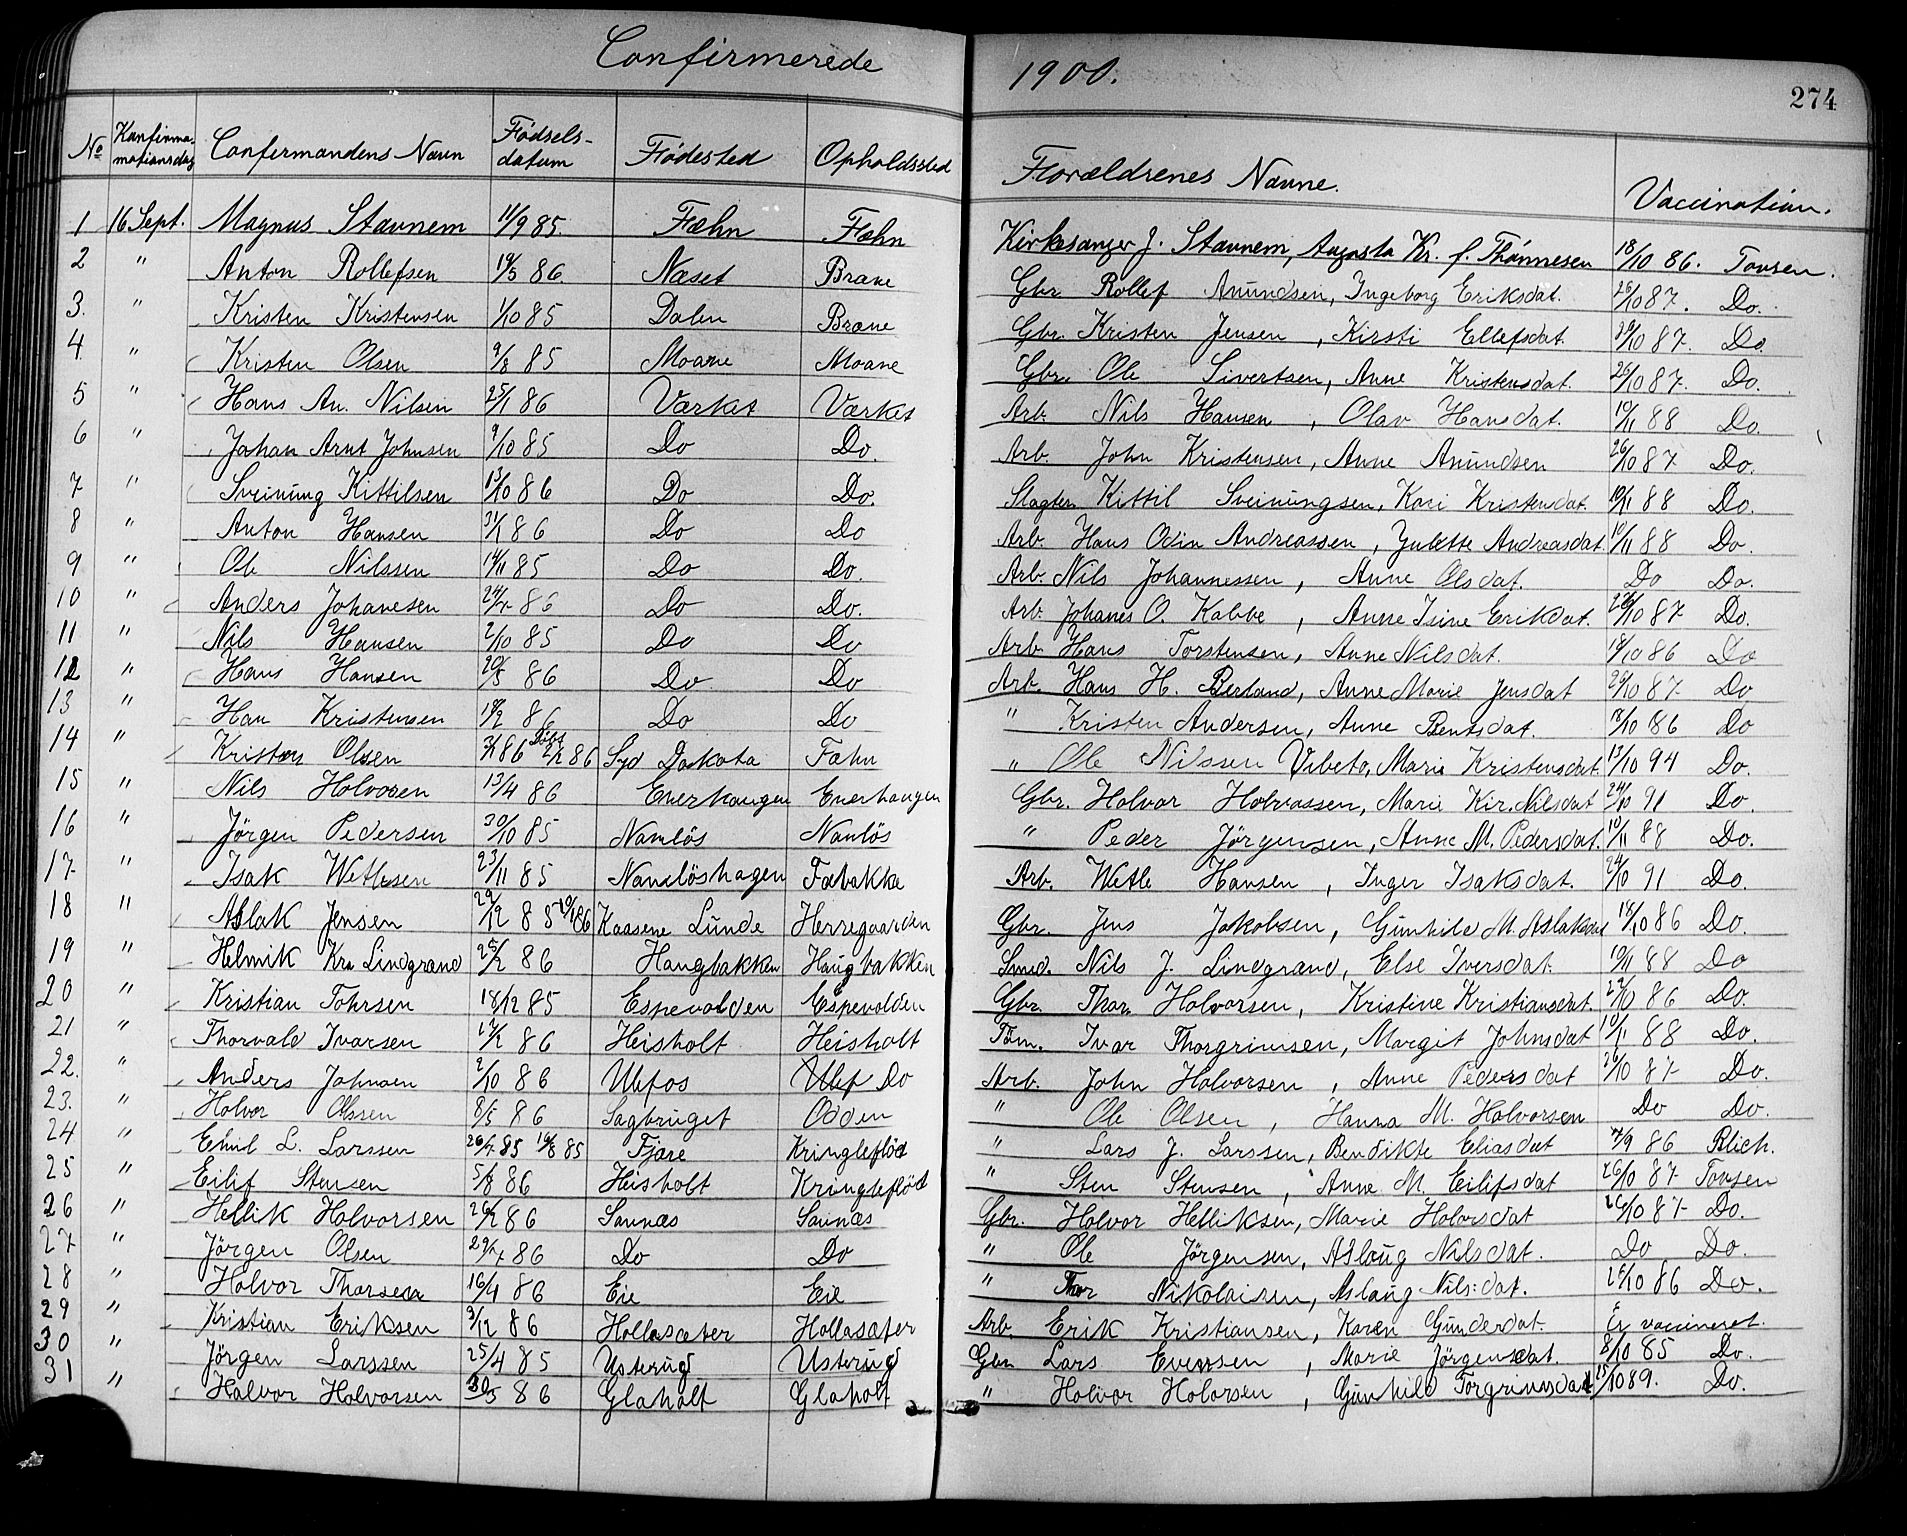 Confirmerede 1900.
274
No Konfirmamationsdag Confirmandens Navn Fødselsdatum Fødested Opholdssted Forældrenes Navne. Vaccination.
1 16 Sept. Magnus Stavnem 11/9 85. Fæhn Fæhn Kirkesanger J. Stavnem, Augusta Kr. f. Thønnesen 18/10 86. Tovsen.
2 " Anton Rollefsen 86. Næset Brane Gbr. Rollef Anundsen, Ingeborg Eriksdat. 26/10 87. Do.
3. " Kristen Kristensen 1/10 85 Dalen Brane Gbr. Kristen Jensen, Kirsti Ellefsdat. /10 87. Do.
4. " Kristen Olsen 9/8 85 Moane Moane Gbr. Ole Sivertsen, Anne Kristensdat. 26/10 87. Do.
5 " Hans An. Nilsen 25/1 86 Værket Værket Arb. Nils Hansen, Olav Hansdat. 10/11 88 Do.
6 " Johan Arnt Johnsen 9/10 85 Do Do. Arb. John Kristensen, Anne Anundsen 26/10 87 Do.
7 " Sveinung Kittilsen 13/10 86 Do Do. Slagter Kittil Sveinungsen, Kari Kristensdat. 10/11 88 Do.
8 " Anton Hansen 31/1 86 Do Do Arb. Hans Odin Andreassen, Julette Andreasdat. 10/11 88 Do.
9 " Ole Nilssen 14/11 85 Do Do. Arb. Nils Johannessen, Anne Olsdat. Do Do.
10 " Anders Johanesen 24/7 86 Do Do. Arb. Johanes O. Kabbe, Anne Isine Erikdat. 26/10 87 Do.
11 " Nils Hansen 2/10 85 Do Do Arb. Hans Torstensen, Anne Nilsdat. 18/10 86 Do
12 " Hans Hansen 20/5 86 Do Do Arb. Hans H. Berland, Anne Marie Jensdat 26/10 87 Do
13 " Han Kristensen 18/2 86 Do Do " Kristen Andersen, Anne Bentsdat. 18/10 86 Do
14 " Kristers Olsen 86 Døbt 86 Syd Dakota Fæhn " Ole Nilssen Vibeto, Marie Kristensdat. 13/10 94 Do.
15 " Nils Holvorsen 13/4 86 Everhaugen Everhaugen Gbr. Holvor Holvorssen, Marie Kir. Nilsdat 24/10 91 Do.
16 " Jörgen Pedersen 30/10 85 Namlös Namlös " Peder Jörgensen, Anne M. Pedersdat. 10/11 88 Do.
17 " Isak Wetlesen 23/11 85 Namlöshagen Fæbakke Arb. Wetle Hansen, Inger Isaksdat. 24/10 91 Do.
18 " Aslak Jensen 29/12 85 86 Kaasene Lunde Herregaarden Gbr. Jens Jakobsen, Gunhild M. Aslaksdat 18/10 86 Do.
19 " Helmik Kr. Lindgrand 25/2 86 Haugbakken Haugbakken Smed. Nils J. Lindgrand, Else Iversdat. 10/11 88 Do
20 " Kristian Tohrsen 18/12 85 Espevolden Espevolden Gbr. Thor Holvorsen, Kristine Kristiansdat. /10 86 Do.
21 " Thorvald Ivarsen 86 Heisholt Heisholt Töm. Ivar Thorgrimsen, Margit Johnsdat 10/11 88 Do.
22. " Anders Johnsen 2/10 86 Ulefos Ulef Do Arb. John Holvorsen, Anne Pedersdat 26/10 87 Do.
23. " Holvor Olssen 8/5 86 Sagbruget Odden " Ole Olsen, Hanna M. Holvorsen Do Do.
24 " Emil L. Larssen 26/7 85 16/8 85 Fjære Kringleflöd " Lars J. Larssen, Bendikte Eliasdat 7/9 86 Blich.
25 " Eilif Stensen 5/8 86 Heisholt Kringleflöd " Sten Stensen, Anne M. Eilifsdat 26/10 87 Tovsen
26 " Hellik Holvorsen 26/2 86 Saunæs Saunæs Gbr. Holvor Helliksen, Marie Holvorsdat 26/10 87 Do.
27 " Jörgen Olsen 29/7 86 Do Do " Ole Jörgensen, Aslaug Nilsdat. Do Do.
28 " Holvor Thorsen 16/4 86 Eie Eie " Thor Nikolaisen, Aslaug Nils:dat. /10 86 Do.
29 " Kristian Eriksen 3/12 86 Hollasæter Hollasæter Arb. Erik Kristiansen, Karen Gunderdat. Er vaccineret.
30 " Jörgen Larssen 25/4 85 Usterud Usterud Gbr Lars Evensen, Marie Jörgensdat. 8/10 85 Do.
31 " Halvor Holvorsen 30/5 86 Glaholt Glaholt " Holvor Holvorsen, Gunhild Torgrimsdat /10 89. Do.